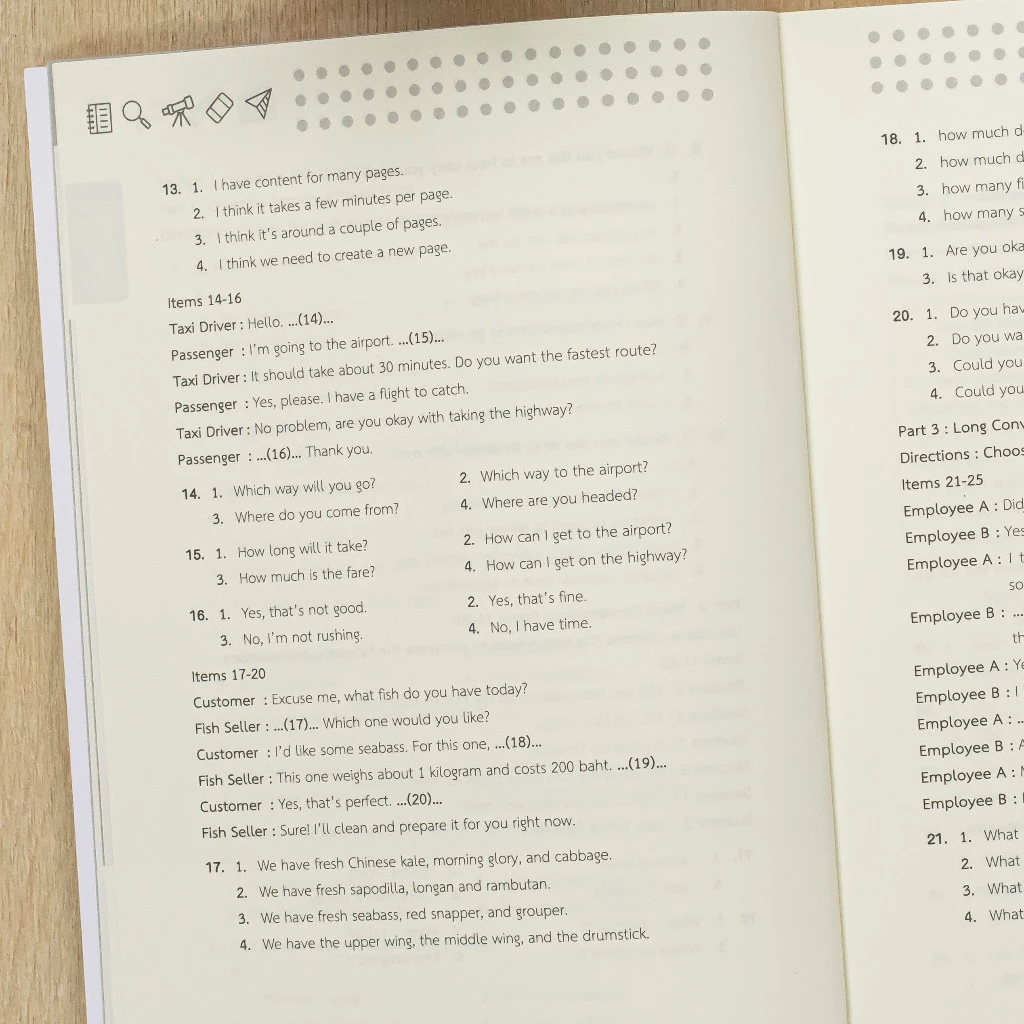 13. 1. I have content for many pages.
2. I think it takes a few minutes per page.
3. I think it's around a couple of pages.
4. I think we need to create a new page.
Items 14-16
Taxi Driver : Hello. ...(14)...
Passenger : I'm going to the airport. ...(15)...
Taxi Driver : It should take about 30 minutes. Do you want the fastest route?
Passenger : Yes, please. I have a flight to catch.
Taxi Driver : No problem, are you okay with taking the highway?
Passenger : ...(16)... Thank you.
14. 1. Which way will you go? 2. Which way to the airport?
3. Where do you come from? 4. Where are you headed?
15. 1. How long will it take? 2. How can I get to the airport?
3. How much is the fare? 4. How can I get on the highway?
16. 1. Yes, that's not good. 2. Yes, that's fine.
3. No, I'm not rushing. 4. No, I have time.
Items 17-20
Customer : Excuse me, what fish do you have today?
Fish Seller : ...(17)... Which one would you like?
Customer : I'd like some seabass. For this one, ...(18)...
Fish Seller : This one weighs about 1 kilogram and costs 200 baht. ...(19)...
Customer : Yes, that's perfect. ...(20)...
Fish Seller : Sure! I'll clean and prepare it for you right now.
17. 1. We have fresh Chinese kale, morning glory, and cabbage.
2. We have fresh sapodilla, longan and rambutan.
3. We have fresh seabass, red snapper, and grouper.
4. We have the upper wing, the middle wing, and the drumstick.
18. 1. how much
2. how much
3. how many
4. how many
19. 1. Are you
3. Is that okay
20. 1. Do you
2. Do you
3. Could you
4. Could you
Part 3 : Long
Directions :
Items 21-25
Employee A :
Employee B : Yes
Employee A : I
so
Employee B : ...
Employee A :
Employee B : I
Employee A :
Employee B :
Employee A :
Employee B :
21. 1. What
2. What
3. What
4. What